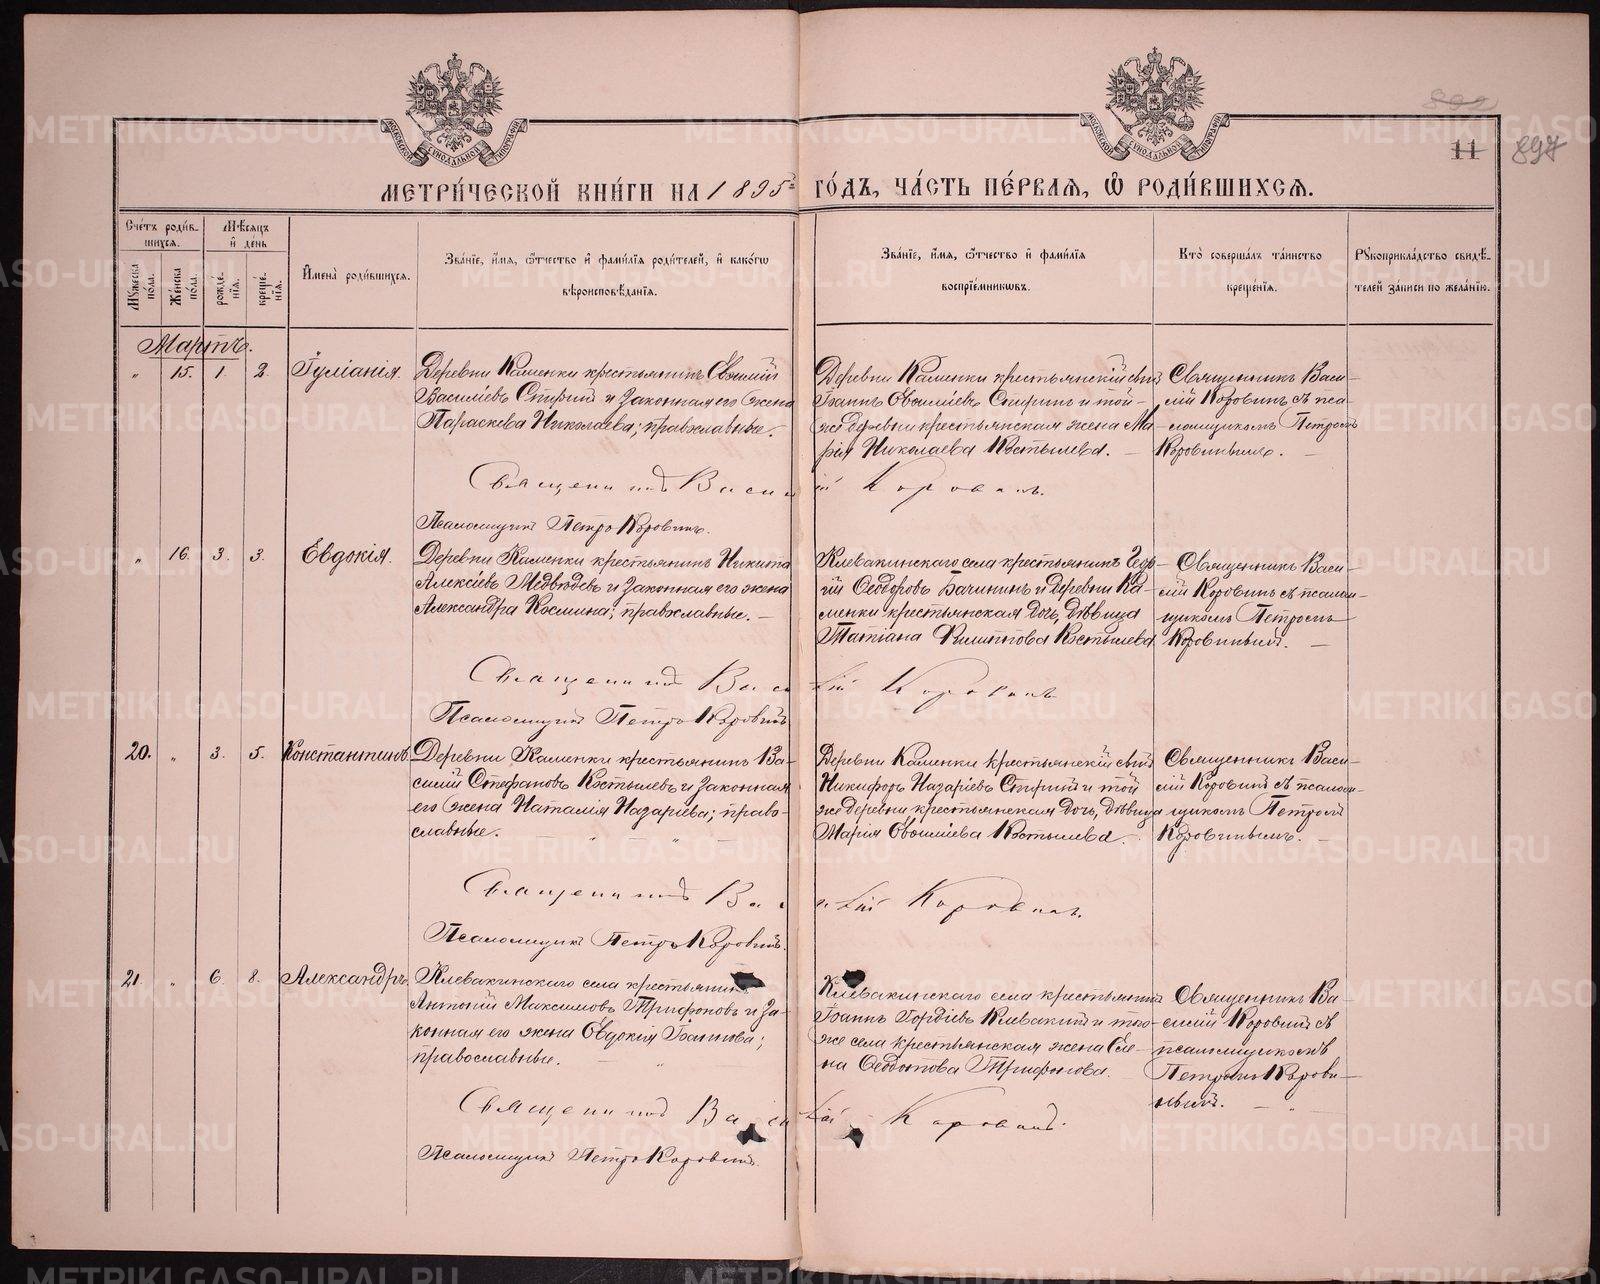 802
11 897
МЕТРИ́ЧЕСКОЙ КНИ́ГИ НА 1895й ГО́ДЪ, ЧА́СТЬ ПЕ́РВАЯ, Ѿ РОДИ́ВШИХСЯ.
Сче́тъ роди́в-
шихся.
Мѣ́сяцъ
и҆ де́нь
Мꙋ́жеска по́ла.
Же́нска по́ла.
рожде́-
нїя.
креще́-
нїя.
И҆мена̀ роди́вшихся.
Зва́нїе, и҆́мя, ѻ҆́тчество и҆ фами́лїя роди́телей, и҆ како́гѡ
вѣроисповѣ́данїя.
Зва́нїе, и҆́мя, ѻ҆́тчество и҆ фами́лїя
воспрїе́мникѡвъ.
Кто̀ соверша́лъ та́инство
креще́нїя.
Рꙋкоприкла́дство свидѣ́-
телей за́писи по жела́нїю.
Мартъ.
„ 15. 1. 2. Іуліанія.
Деревни Каменки крестьянинъ Евѳимій
Василіевъ Спиринъ и законная его жена
Параскева Николаева; православные.
Деревни Каменки крестьянскій сынъ
Іоаннъ Евѳиміевъ Спиринъ и той-
же деревни крестьянская жена Ма-
рія Николаева Костылева. —
Священникъ Васи-
лій Коровинъ съ пса-
ломщикомъ Петромъ
Коровинымъ. —
Священникъ Василій Коровинъ.
Псаломщикъ Петръ Коровинъ.
„ 16. 3. 3. Евдокія.
Деревни Каменки крестьянинъ Никита
Алексіевъ Медвѣдевъ и законная его жена
Александра Космина; православные. —
Клевакинскаго села крестьянинъ Геор-
гій Ѳеодоровъ Бачининъ и деревни Ка-
менки крестьянская дочь, дѣвица
Татіана Филиппова Костылева
Священникъ Васи-
лій Коровинъ съ псалом-
щикомъ Петромъ
Коровинымъ. —
Священникъ Василій Коровинъ
Псаломщикъ Петръ Коровинъ
20. „ 3. 5. Константинъ.
Деревни Каменки крестьянинъ Ва-
силій Стефановъ Костылевъ и законная
его жена Наталія Назаріева; право-
славные. — „ — „ —
Деревни Каменки крестьянскій сынъ
Никифоръ Назаріевъ Спиринъ и той
же деревни крестьянская дочь, дѣвица
Марія Евѳиміева Костылева. —
Священникъ Васи-
лій Коровинъ съ псалом-
щикомъ Петромъ
Коровинымъ. —
Священникъ Василій Коровинъ.
Псаломщикъ Петръ Коровинъ.
21. „ 6. 8. Александръ.
Клевакинскаго села крестьянинъ
Антоній Максимовъ Трифоновъ и за-
конная его жена Евдокія Іоаннова;
православные. — „
Клевакинскаго села крестьянинъ
Іоаннъ Гордіевъ Клевакинъ и того-
же села крестьянская жена Еле-
на Ѳеодотова Трифонова.
Священникъ Ва-
силій Коровинъ съ
псаломщикомъ
Петромъ Корови-
нымъ. — „
Священникъ Василій Коровинъ.
Псаломщикъ Петръ Коровинъ.